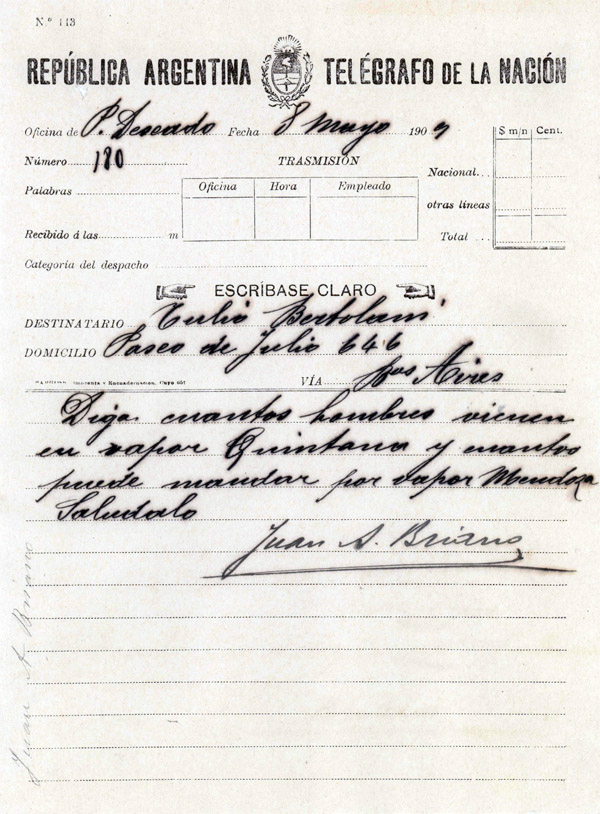 N.º 113
REPÚBLICA ARGENTINA TELÉGRAFO DE LA NACIÓN
Oficina de P. Deseado Fecha 8 Mayo 1909
$ m/n Cent.
Número 180 TRASMISIÓN
Nacional
Palabras
Oficina Hora Empleado
otras líneas
Recibido á las m
Total
Categoría del despacho
ESCRÍBASE CLARO
DESTINATARIO Tulio Bertolani
DOMICILIO Paseo de Julio 646
Imprenta y Encuadernación, Cuyo
VÍA Bos Aires
Diga cuantos hombres vienen
en vapor Quintana y cuantos
puede mandar por vapor Mendoza
Saludalo
Juan A. Briano
Juan A Briano